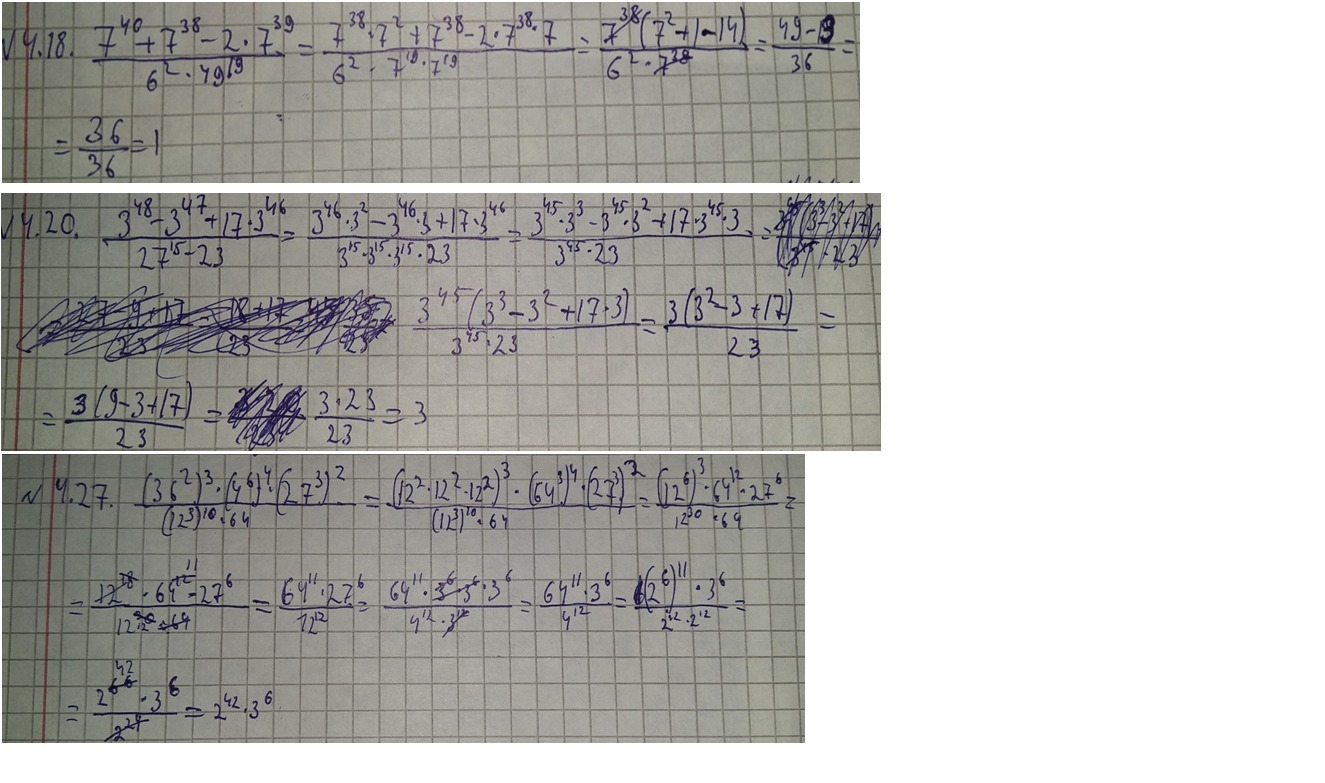 √4.18. (7^40 + 7^38 − 2·7^39)/(6^2 · 49^19) = (7^38·7^2 + 7^38 − 2·7^38·7)/(6^2 · 7^19·7^19) = (7^38(7^2 + 1 − 14))/(6^2 · 7^38) = (49 − )/36 =
= 36/36 = 1
√4.20. (3^48 − 3^47 + 17·3^46)/(27^15 − 23) = (3^46·3^2 − 3^46·3 + 17·3^46)/(3^15·3^15·3^15·23) = (3^45·3^3 − 3^45·3^2 + 17·3^45·3)/(3^45·23) =
(3^45(3^3 − 3^2 + 17·3))/(3^45·23) = (3(3^2 − 3 + 17))/23 =
= (3(9 − 3 + 17))/23 = (3·23)/23 = 3
N 4.27. ((36^2)^3 · (4^6)^4 · (27^3)^2)/((12^3)^10 · 64) = ((12^2·12^2·12^2)^3 · (64^3)^4 · (27^3)^2)/((12^3)^10 · 64) = ((12^6)^3 · 64^12 · 27^6)/(12^30 · 64) =
= (12^18 · 64^12 11 · 27^6)/(12^30 12 · 64) = (64^11 · 27^6)/12^12 = (64^11 · 3^6·3^6·3^6)/(4^12 · 3^12) = (64^11 · 3^6)/4^12 = ((2^6)^11 · 3^6)/(2^12 · 2^12) =
= (2^66 42 · 3^6)/2^24 = 2^42 · 3^6